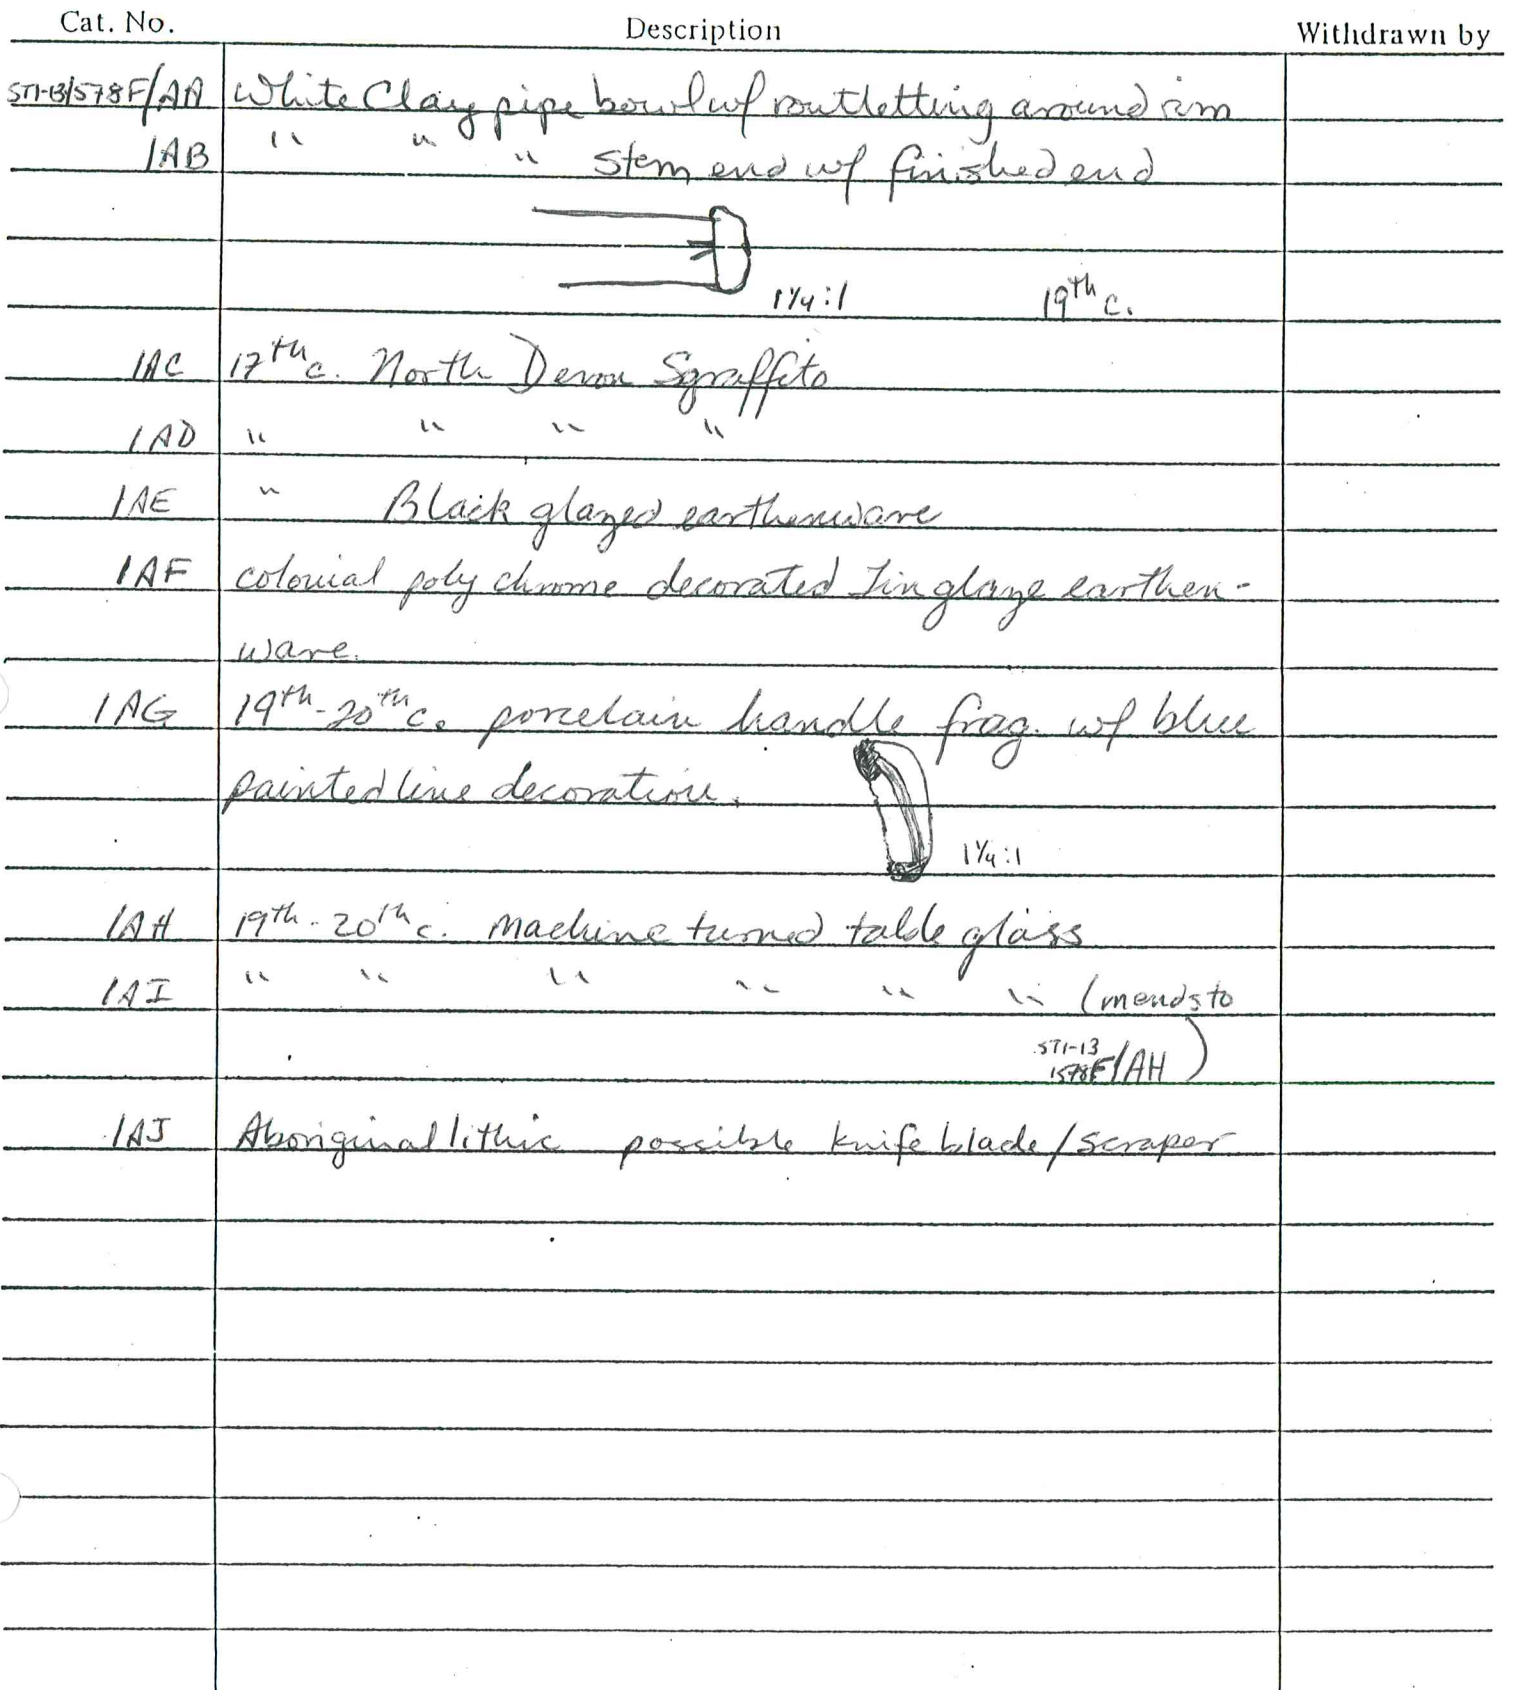 Cat. No. Description Withdrawn by
ST1-13/578F/AA White Clay pipe bowl w/ routletting around rim
/AB " " " Stem end w/ finished end
1¼:1 19th c.
/AC 17th c. North Devon Sgraffito
/AD " " " "
/AE " Black glazed earthenware
/AF colonial poly chrome decorated Tin glaze earthen-
ware.
/AG 19th-20th c. porcelain handle frag. w/ blue
painted line decoration.
1¼:1
/AH 19th-20th c. Machine turned table glass
/AI " " " " " " (mends to
ST1-13
1578F/AH)
/AJ Aboriginal lithic possible knife blade/scraper